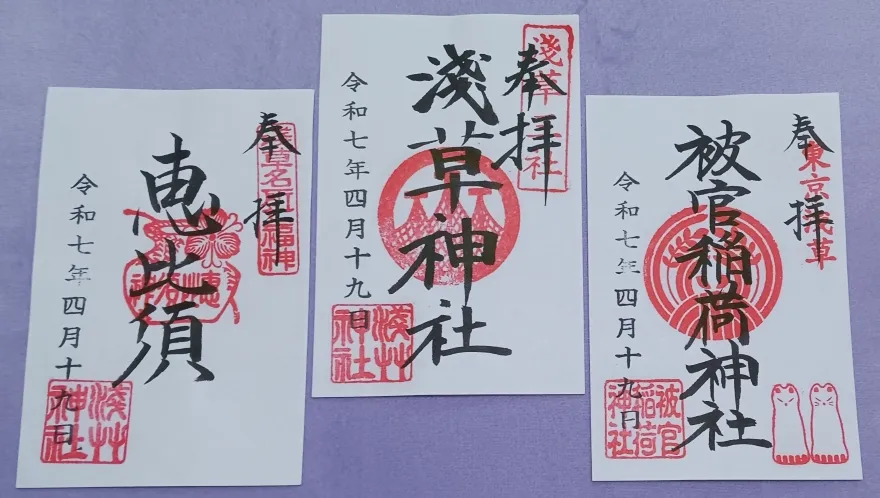 奉拝
淺草名所七福神
恵比須
令和七年四月十九日
淺艸
神社
奉拝
淺草神社
令和七年四月十九日
淺艸
神社
奉拝
東京浅草
被官稲荷神社
令和七年四月十九日
被官
稲荷
神社